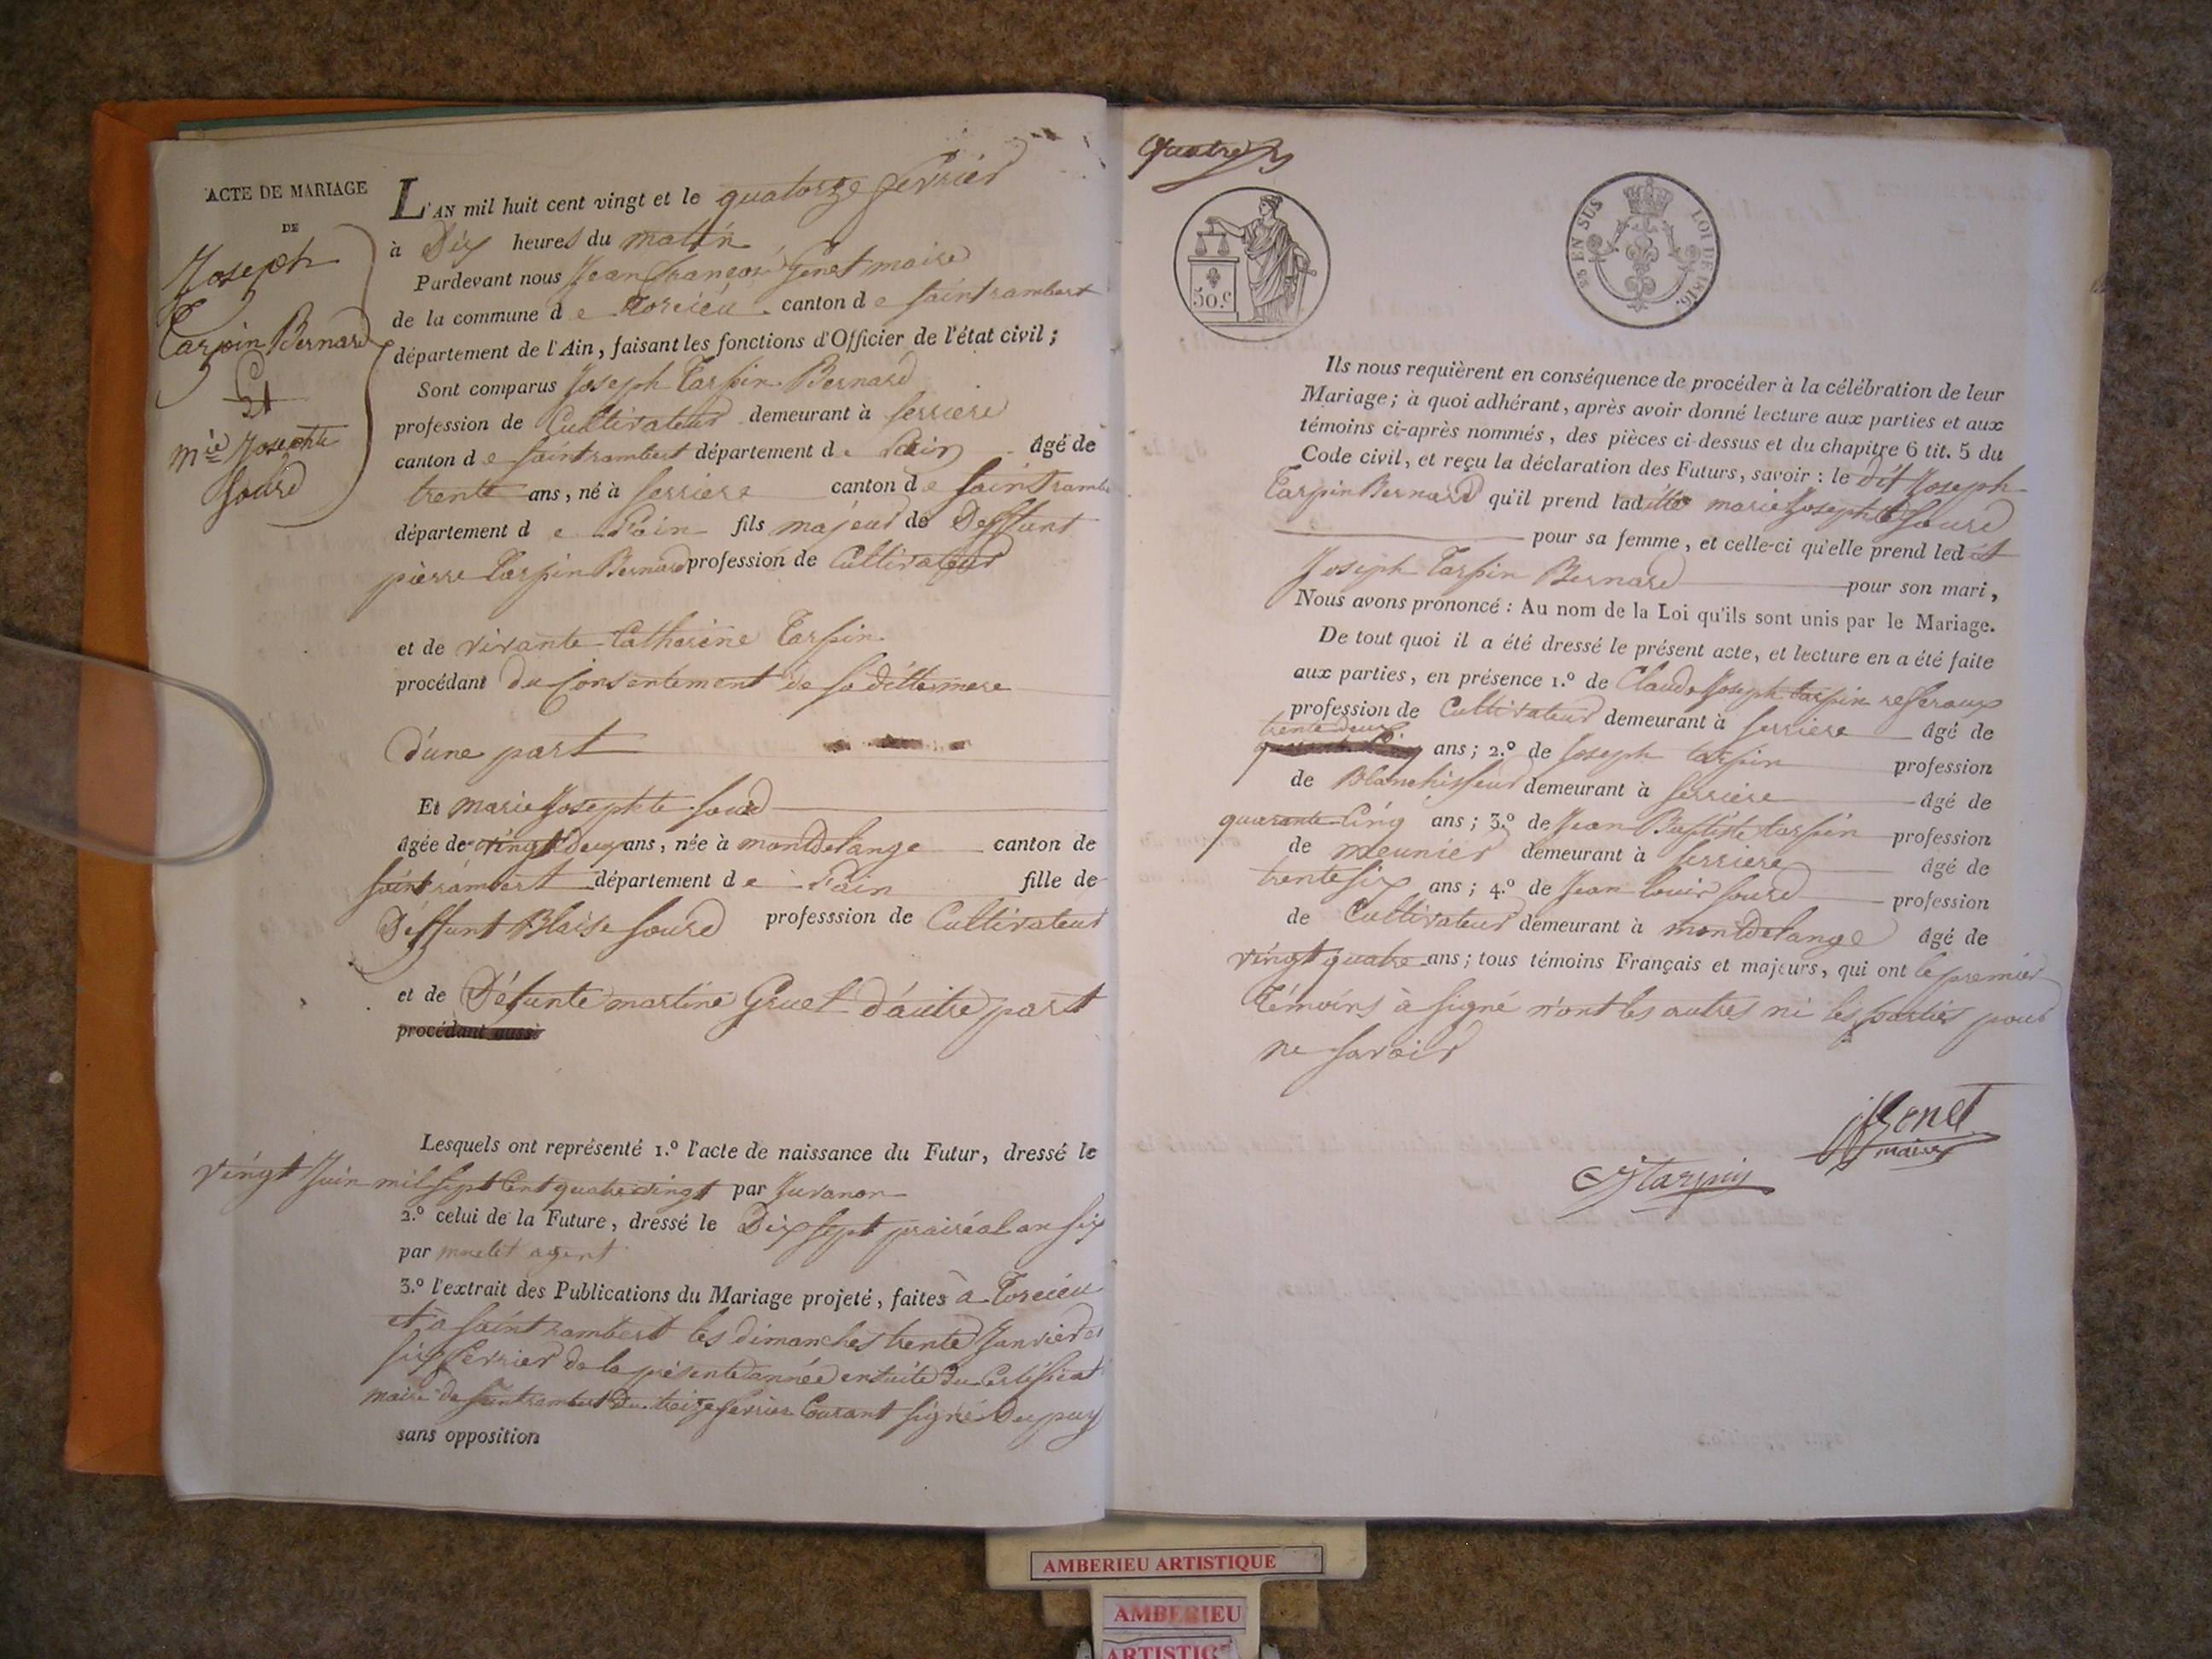 ACTE DE MARIAGE
DE
Joseph
Tarpin Bernard
Et
Mie Josephte
Sourd
L'AN mil huit cent vingt et le quatorze fevrier
à Dix heures du matin
Pardevant nous Jean François Genet maire
de la commune de Torcieu canton de saint rambert
département de l'Ain, faisant les fonctions d'Officier de l'état civil;
Sont comparus Joseph Tarpin Bernard
profession de Cultivateur demeurant à serriere
canton de saint rambert département de Lain âgé de
trente ans, né à serriere canton de saint rambe
département de Lain fils majeur de Deffunt
pierre Tarpin Bernard profession de Cultivateur
et de vivante Catherine Tarpin
procédant du Consentement de sa ditte mere
d'une part
Et marie Josephte sourd
âgée de vingt deux ans, née à montDelange canton de
saint rambert département de Lain fille de
Deffunt Blaise sourd professsion de Cultivateur
et de Défunte martine Gruel d'autre part
procédant aussi
Lesquels ont représenté 1.º l'acte de naissance du Futur, dressé le
vingt Juin mil sept Cent quatre vingt par Juvanon
2.º celui de la Future, dressé le Dix sept prairéal an six
par agent
3.º l'extrait des Publications du Mariage projeté, faites à Torcieu
et à saint rambert les dimanches trente Janvier et
six fevrier de la présente année ensuite du Certificat
maire de saint rambert du treize fevrier Courant signé Dupuy
sans opposition
quatre
50.c
25 EN SUS LOI DE 1816.
Ils nous requièrent en conséquence de procéder à la célébration de leur
Mariage; à quoi adhérant, après avoir donné lecture aux parties et aux
témoins ci-après nommés, des pièces ci-dessus et du chapitre 6 tit. 5 du
Code civil, et reçu la déclaration des Futurs, savoir : le dit Joseph
Tarpin Bernard qu'il prend laditte marie Josephte Sourd
pour sa femme, et celle-ci qu'elle prend ledit
Joseph Tarpin Bernard pour son mari,
Nous avons prononcé : Au nom de la Loi qu'ils sont unis par le Mariage.
De tout quoi il a été dressé le présent acte, et lecture en a été faite
aux parties, en présence 1.º de Claude Joseph tarpin
profession de Cultivateur demeurant à serriere âgé de
trente deux
ans; 2.º de Joseph tarpin profession
de Blanchisseur demeurant à serriere âgé de
quarante Cinq ans; 3.º de Jean Baptiste tarpin profession
de meunier demeurant à serriere âgé de
trente six ans; 4.º de Jean louis sourd profession
de Cultivateur demeurant à montDelange âgé de
vingt quatre ans; tous témoins Français et majeurs, qui ont le premier
Témoins à signé n'ont les autres ni les parties pour
ne savoir
Genet
maire
tarpin
AMBERIEU ARTISTIQUE
AMBERIEU
ARTISTIC